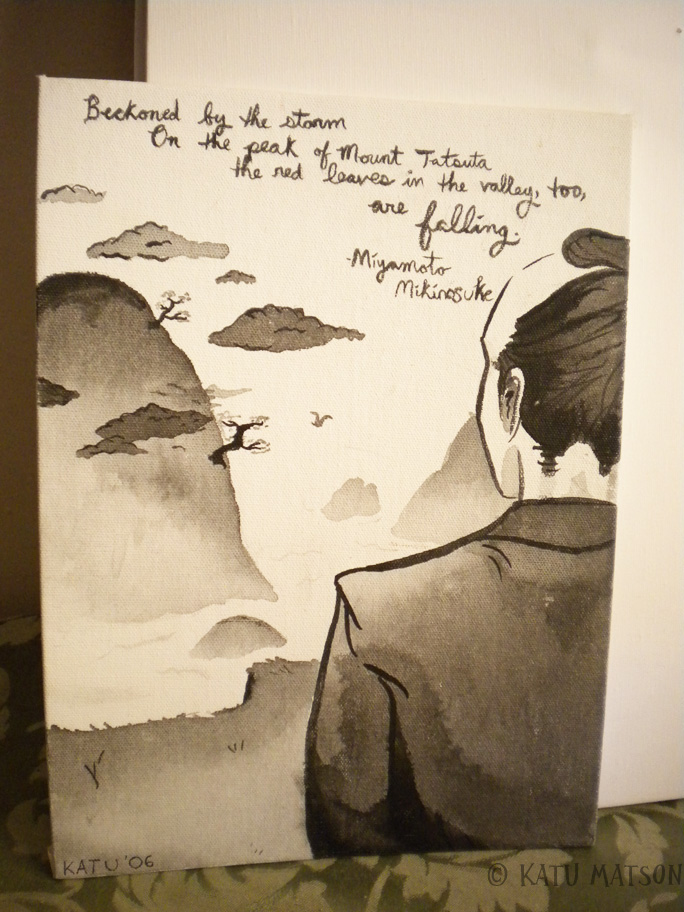 Beckoned by the storm
On the peak of Mount Tatsuta
the red leaves in the valley, too,
are falling.
-Miyamoto
Mikinosuke
KATU '06
© KATU MATSON